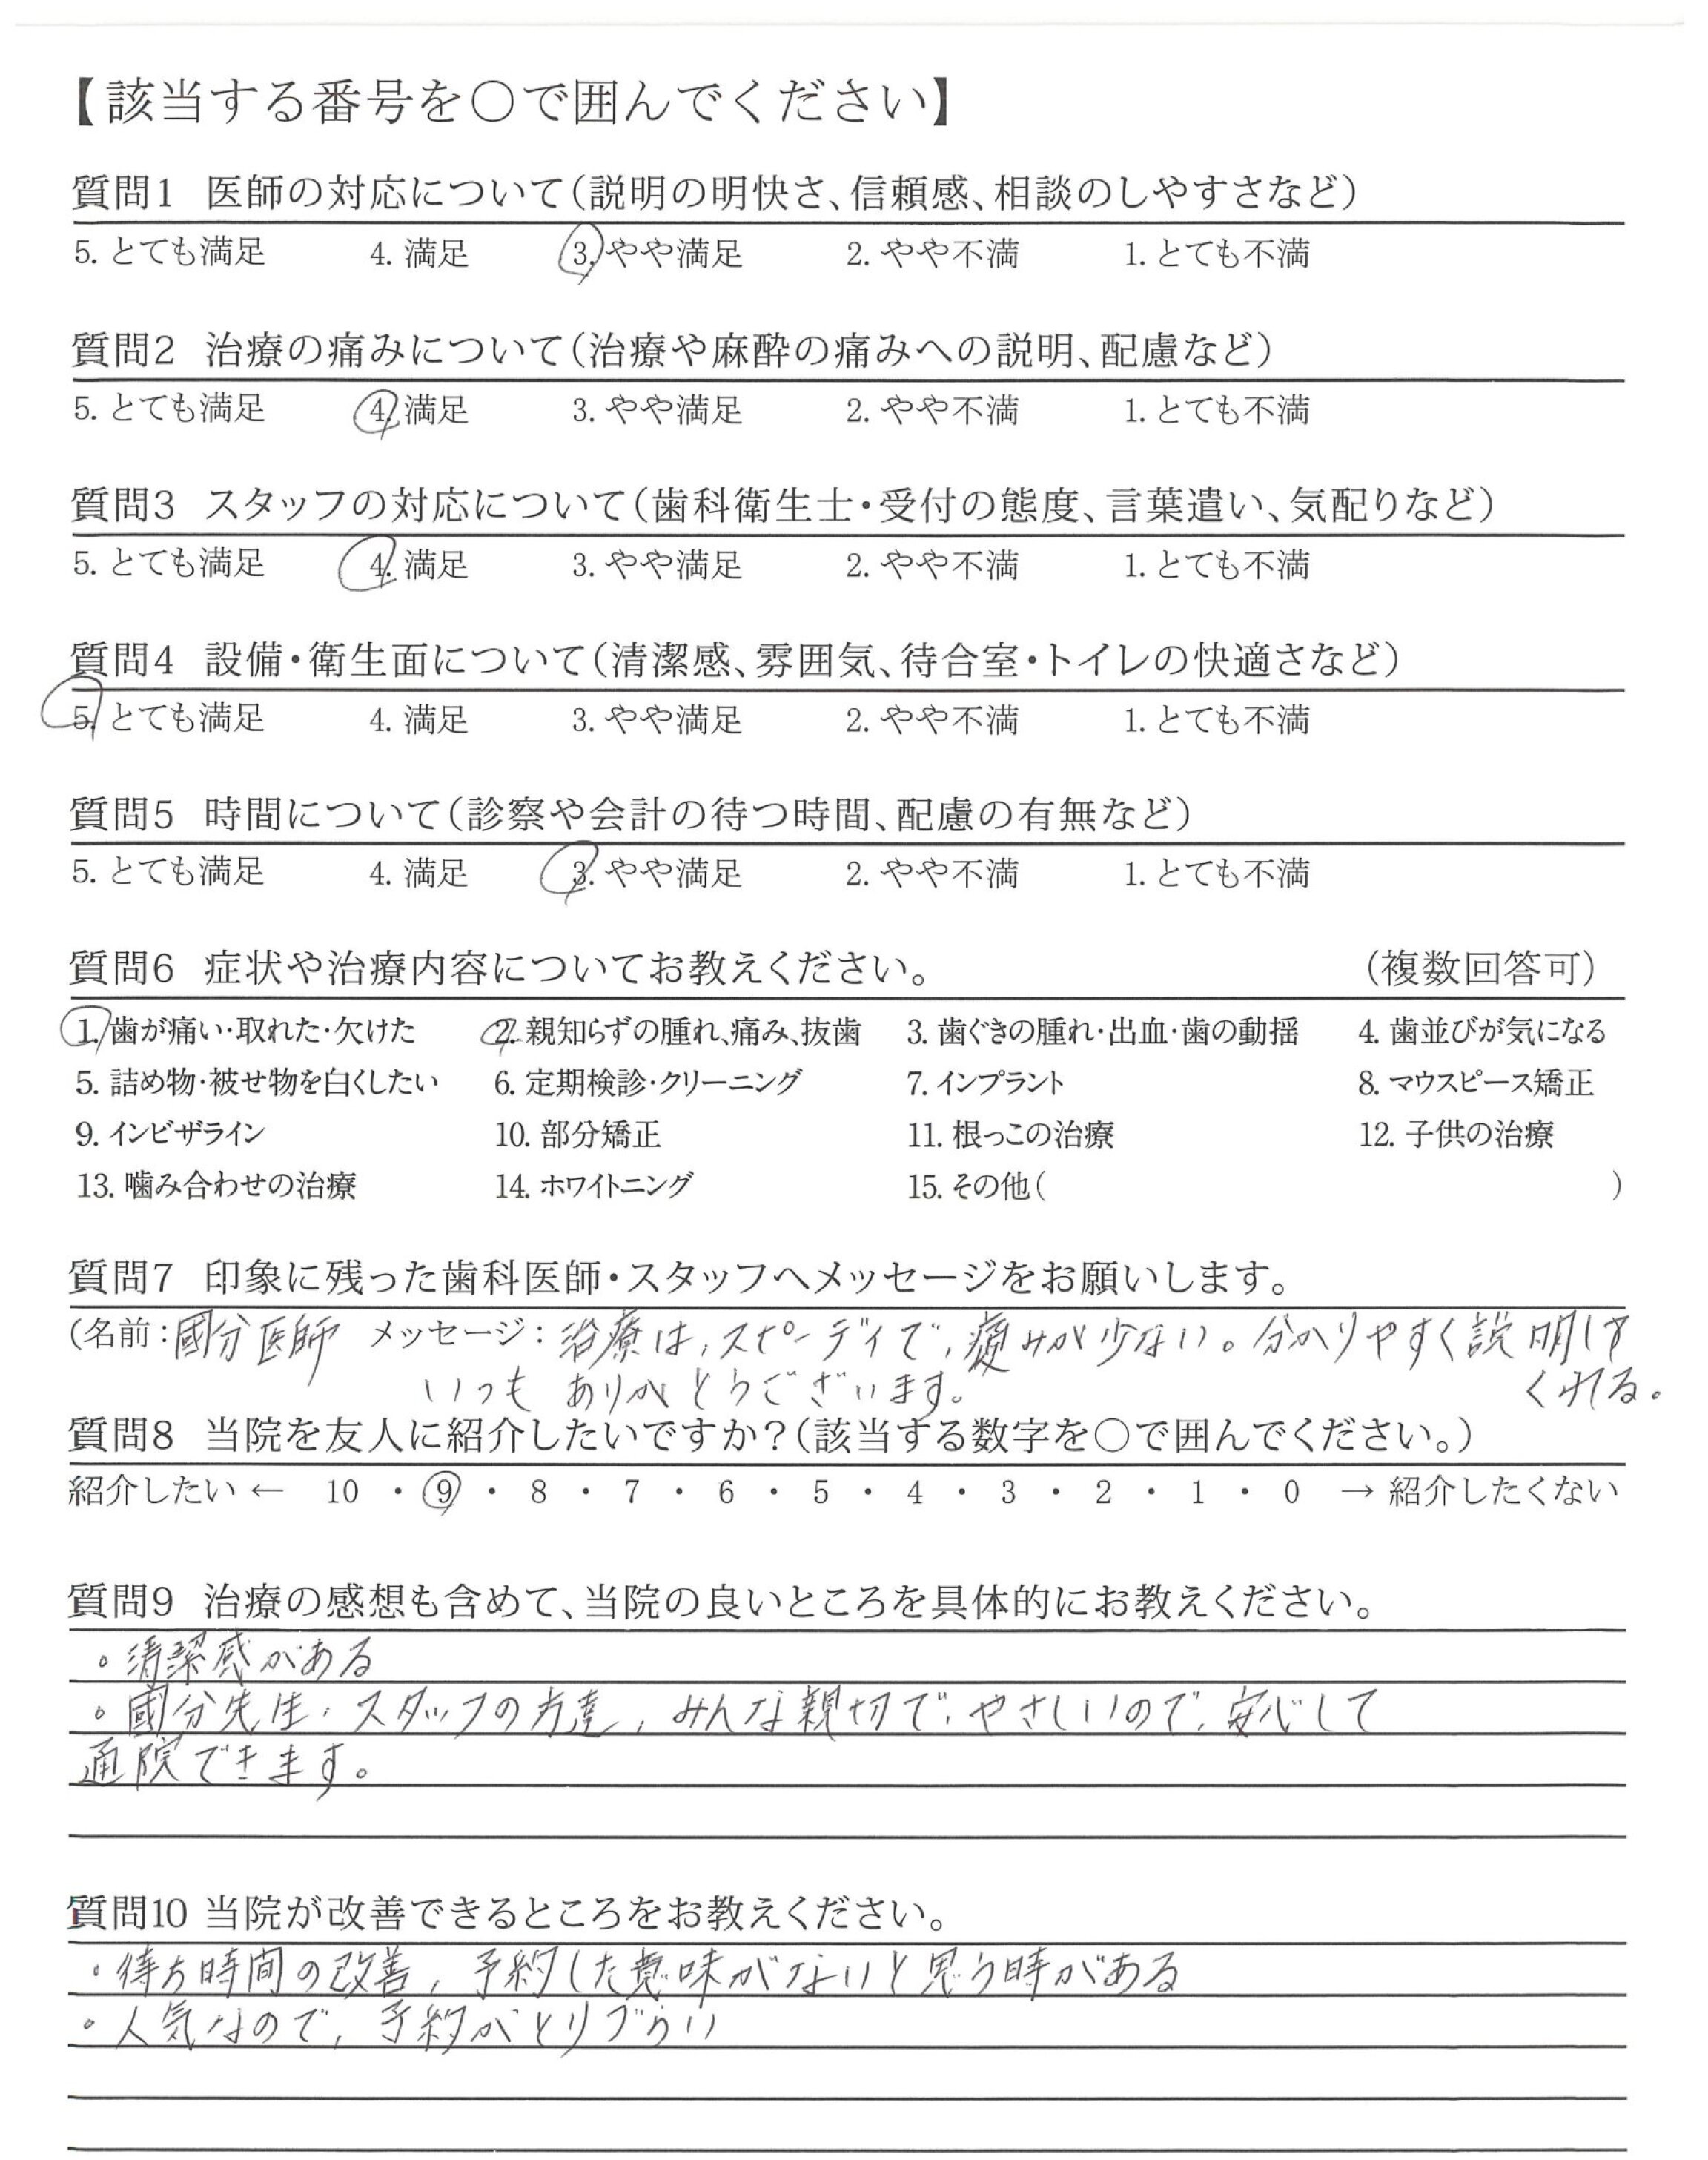 【該当する番号を〇で囲んでください】
質問1 医師の対応について(説明の明快さ、信頼感、相談のしやすさなど)
5. とても満足 4. 満足 3. やや満足 2. やや不満 1. とても不満
質問2 治療の痛みについて(治療や麻酔の痛みへの説明、配慮など)
5. とても満足 4. 満足 3. やや満足 2. やや不満 1. とても不満
質問3 スタッフの対応について(歯科衛生士・受付の態度、言葉遣い、気配りなど)
5. とても満足 4. 満足 3. やや満足 2. やや不満 1. とても不満
質問4 設備・衛生面について(清潔感、雰囲気、待合室・トイレの快適さなど)
5. とても満足 4. 満足 3. やや満足 2. やや不満 1. とても不満
質問5 時間について(診察や会計の待つ時間、配慮の有無など)
5. とても満足 4. 満足 3. やや満足 2. やや不満 1. とても不満
質問6 症状や治療内容についてお教えください。 (複数回答可)
1. 歯が痛い・取れた・欠けた 2. 親知らずの腫れ、痛み、抜歯 3. 歯ぐきの腫れ・出血・歯の動揺 4. 歯並びが気になる
5. 詰め物・被せ物を白くしたい 6. 定期検診・クリーニング 7. インプラント 8. マウスピース矯正
9. インビザライン 10. 部分矯正 11. 根っこの治療 12. 子供の治療
13. 噛み合わせの治療 14. ホワイトニング 15. その他( )
質問7 印象に残った歯科医師・スタッフへメッセージをお願いします。
(名前:國分医師 メッセージ:治療は、スピーディで、痛みが少ない。分かりやすく説明して
くれる。
いつも ありがとうございます。
質問8 当院を友人に紹介したいですか?(該当する数字を〇で囲んでください。)
紹介したい ← 10 ・ 9 ・ 8 ・ 7 ・ 6 ・ 5 ・ 4 ・ 3 ・ 2 ・ 1 ・ 0 → 紹介したくない
質問9 治療の感想も含めて、当院の良いところを具体的にお教えください。
。清潔感がある
。國分先生、スタッフの方達、みんな親切で、やさしいので、安心して
通院できます。
質問10 当院が改善できるところをお教えください。
・待ち時間の改善、予約した意味がないと思う時がある
・人気なので、予約がとりづらい